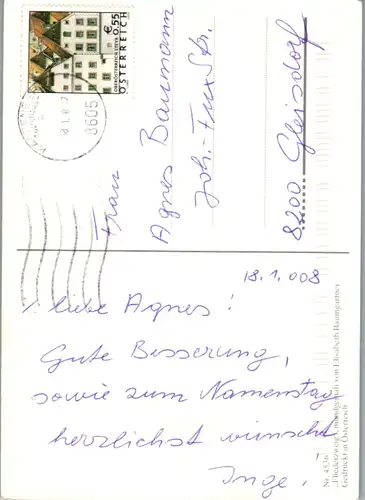 18.1.008
liebe Agnes!
Gute Besserung,
sowie zum Namenstag
herzlichst wünscht
Inge!
Frau
Agnes Baumann
Joh.-Fux Str.
8200 Gleisdorf
€ 0,55
OBERÖSTERREICH STEYR
ÖSTERREICH
8605
"Fliederzweig", mundgemalt von Elisabeth Baumgartner
Gedruckt in Österreich